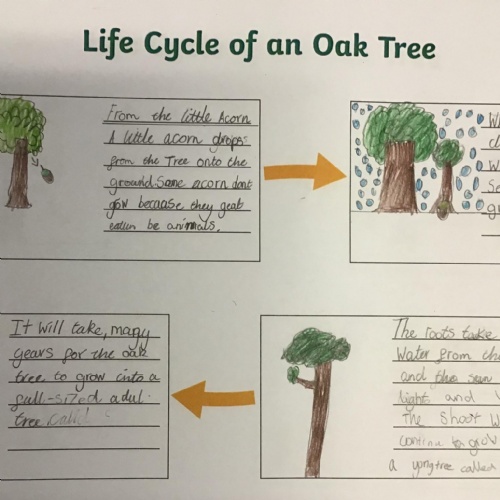 Life Cycle of an Oak Tree
From the little Acorn
A little acorn drops
from the Tree onto the
ground. Some acorn dont
grow because they geat
eatun be animals.
It will take, many
years for the oak
tree to grow into a
full-sized adul
tree
The roots take
Water from the
and the sun
light and
The Shoot
contine to grow
a yongtree called